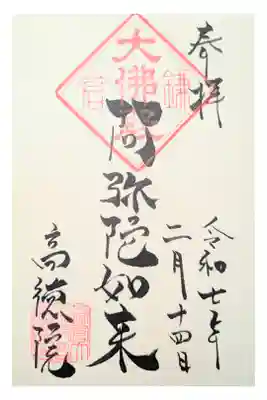 奉拝
令和七年
二月十四日
阿弥陀如来
高徳院
大佛殿
鎌
倉